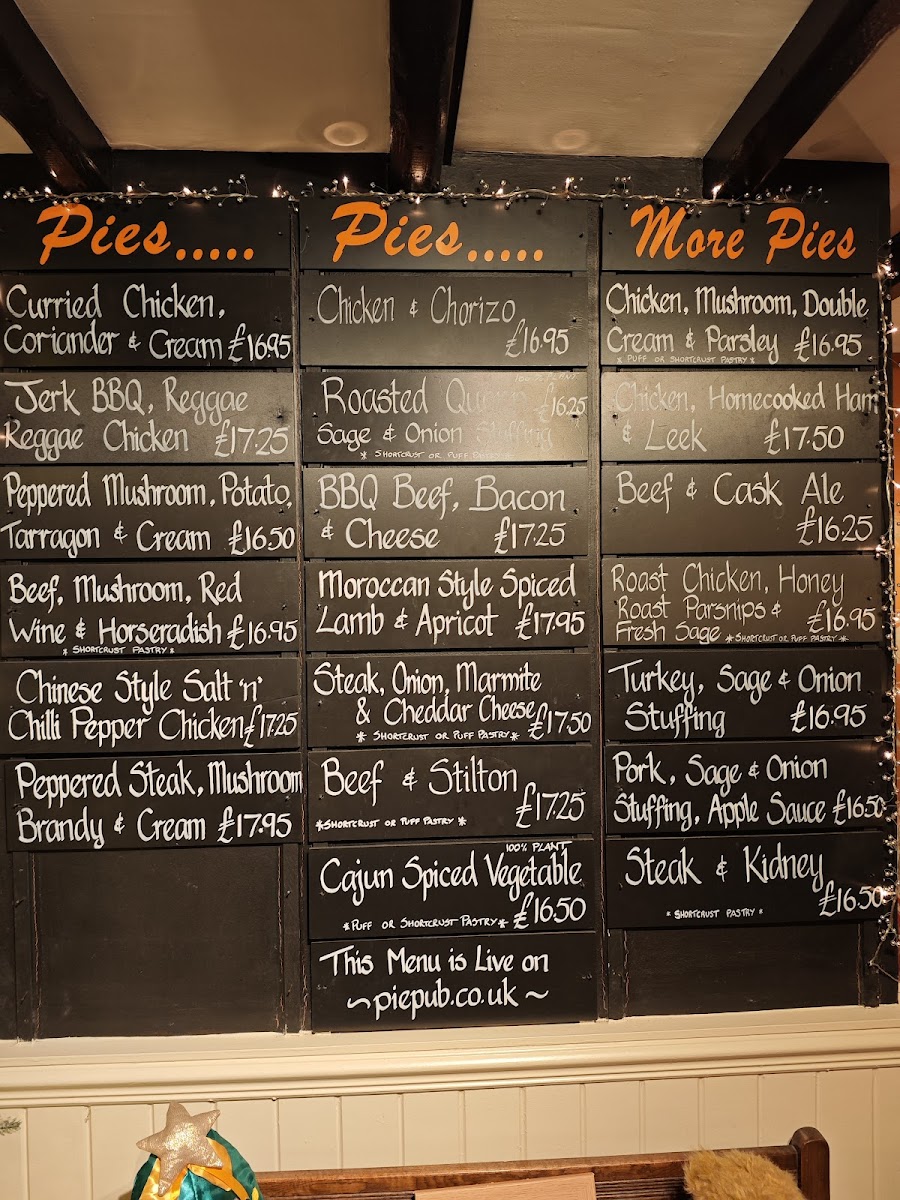 Pies.....
Curried Chicken,
Coriander & Cream £16.95
Jerk BBQ, Reggae
Reggae Chicken £17.25
Peppered Mushroom, Potato,
Tarragon & Cream £16.50
Beef, Mushroom, Red
Wine & Horseradish £16.95
* SHORTCRUST PASTRY *
Chinese Style Salt 'n'
Chilli Pepper Chicken £17.25
Peppered Steak, Mushroom
Brandy & Cream £17.95
Pies.....
Chicken & Chorizo
£16.95
100% PLANT
Roasted Quorn £16.25
Sage & Onion Stuffing
* SHORTCRUST OR PUFF PASTRY *
BBQ Beef, Bacon
& Cheese £17.25
Moroccan Style Spiced
Lamb & Apricot £17.95
Steak, Onion, Marmite
& Cheddar Cheese £17.50
* SHORTCRUST OR PUFF PASTRY *
Beef & Stilton
£17.25
*SHORTCRUST OR PUFF PASTRY *
100% PLANT
Cajun Spiced Vegetable
£16.50
*PUFF OR SHORTCRUST PASTRY*
This Menu is Live on
~piepub.co.uk~
More Pies
Chicken, Mushroom, Double
Cream & Parsley £16.95
* PUFF OR SHORTCRUST PASTRY *
Chicken, Homecooked Ham
& Leek £17.50
Beef & Cask Ale
£16.25
Roast Chicken, Honey
Roast Parsnips & £16.95
Fresh Sage *SHORTCRUST OR PUFF PASTRY*
Turkey, Sage & Onion
Stuffing £16.95
Pork, Sage & Onion
Stuffing, Apple Sauce £16.50
Steak & Kidney
£16.50
* SHORTCRUST PASTRY *